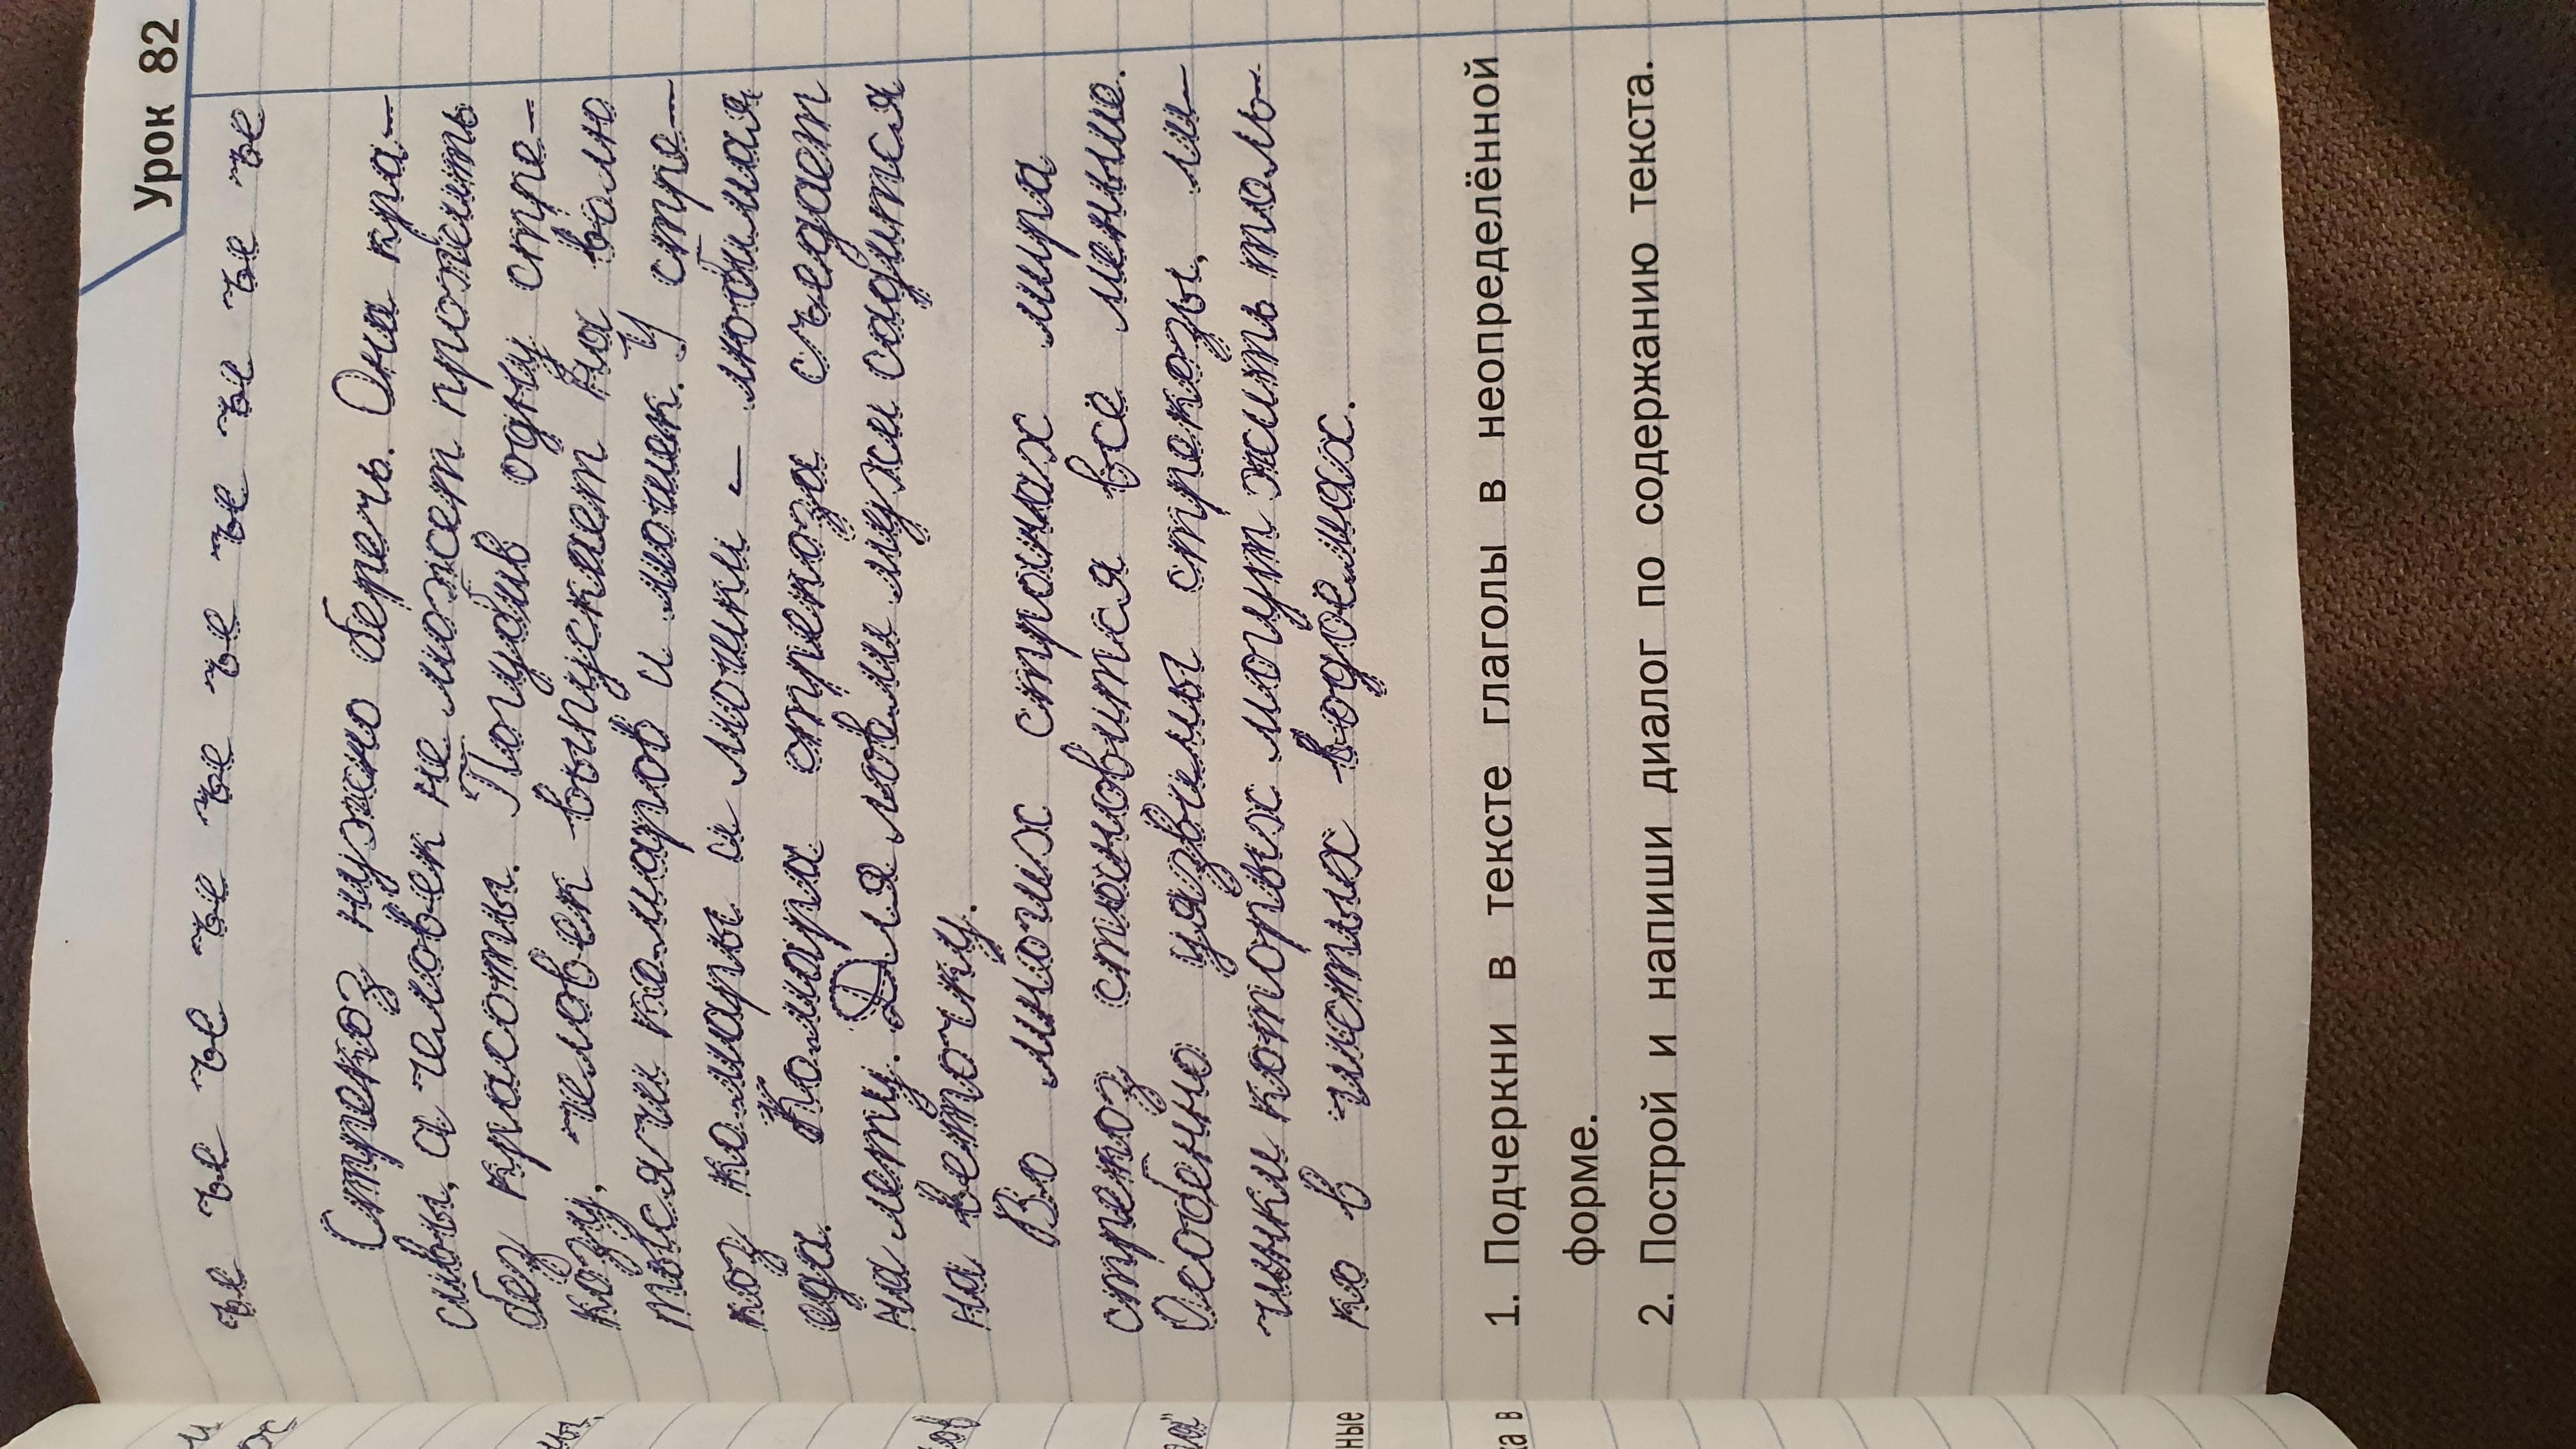 Урок 82
ъе ъе ъе ъе ъе ъе ъе ъе ъе ъе
Стрекоз нужно беречь. Они кра-
сивы, а человек не может прожить
без красоты. Погубив одну стре-
козу, человек выпускает на волю
тысячи комаров и мошек. У стре-
коз комары и мошки – любимая
еда. Комара стрекоза съедает
на лету. Для ловли мухи садится
на веточку.
Во многих странах мира
стрекоз становится всё меньше.
Особенно уязвимы стрекозы, ли-
чинки которых могут жить толь-
ко в чистых водоёмах.
1. Подчеркни в тексте глаголы в неопределённой
форме.
2. Построй и напиши диалог по содержанию текста.
ные